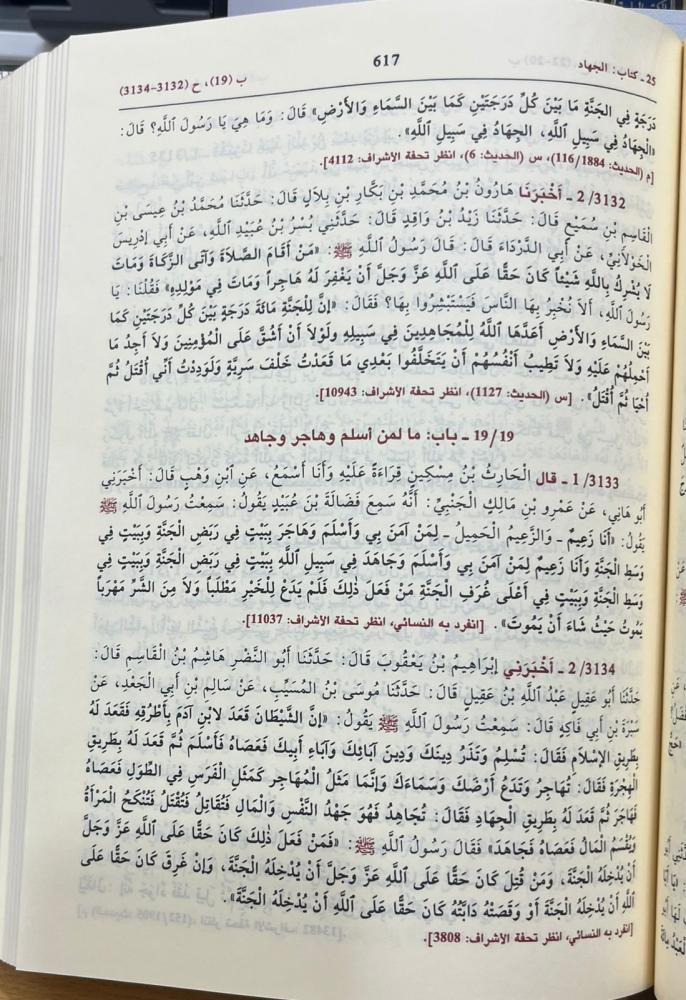 25ـ كتاب: الجهاد
617
ب (19)، ح (3132–3134)
دَرَجَةٍ فِي الْجَنَّةِ مَا بَيْنَ كُلِّ دَرَجَتَيْنِ كَمَا بَيْنَ السَّمَاءِ وَالأَرْضِ» قَالَ: وَمَا هِيَ يَا رَسُولَ اللَّهِ؟ قَالَ:
«الْجِهَادُ فِي سَبِيلِ اللَّهِ، الْجِهَادُ فِي سَبِيلِ اللَّهِ».
[م (الحديث: 116/1884)، س (الحديث: 6)، انظر تحفة الأشراف: 4112].
2/3132 ـ أَخْبَرَنَا هَارُونُ بْنُ مُحَمَّدِ بْنِ بَكَّارِ بْنِ بِلَالٍ قَالَ: حَدَّثَنَا مُحَمَّدُ بْنُ عِيسَى بْنِ
الْقَاسِمِ بْنِ سُمَيْعٍ قَالَ: حَدَّثَنَا زَيْدُ بْنُ وَاقِدٍ قَالَ: حَدَّثَنِي بُسْرُ بْنُ عُبَيْدِ اللَّهِ، عَنْ أَبِي إِدْرِيسَ
الْخَوْلَانِيِّ، عَنْ أَبِي الدَّرْدَاءِ قَالَ: قَالَ رَسُولُ اللَّهِ ﷺ: «مَنْ أَقَامَ الصَّلَاةَ وَآتَى الزَّكَاةَ وَمَاتَ
لَا يُشْرِكُ بِاللَّهِ شَيْئاً كَانَ حَقًّا عَلَى اللَّهِ عَزَّ وَجَلَّ أَنْ يَغْفِرَ لَهُ هَاجِراً وَمَاتَ فِي مَوْلِدِهِ» فَقُلْنَا: يَا
رَسُولَ اللَّهِ، أَلَا نُخْبِرُ بِهَا النَّاسَ فَيَسْتَبْشِرُوا بِهَا؟ فَقَالَ: «إِنَّ لِلْجَنَّةِ مَائَةَ دَرَجَةٍ بَيْنَ كُلِّ دَرَجَتَيْنِ كَمَا
بَيْنَ السَّمَاءِ وَالأَرْضِ أَعَدَّهَا اللَّهُ لِلْمُجَاهِدِينَ فِي سَبِيلِهِ وَلَوْلَا أَنْ أَشُقَّ عَلَى الْمُؤْمِنِينَ وَلَا أَجِدُ مَا
أَحْمِلُهُمْ عَلَيْهِ وَلَا تَطِيبُ أَنْفُسُهُمْ أَنْ يَتَخَلَّفُوا بَعْدِي مَا قَعَدْتُ خَلْفَ سَرِيَّةٍ وَلَوَدِدْتُ أَنِّي أُقْتَلُ ثُمَّ
أُحْيَا ثُمَّ أُقْتَلُ». [س (الحديث: 1127)، انظر تحفة الأشراف: 10943].
19/19 ـ باب: ما لمن أسلم وهاجر وجاهد
1/3133 ـ قال الْحَارِثُ بْنُ مِسْكِينٍ قِرَاءَةً عَلَيْهِ وَأَنَا أَسْمَعُ، عَنِ ابْنِ وَهْبٍ قَالَ: أَخْبَرَنِي
أَبُو هَانِي، عَنْ عَمْرِو بْنِ مَالِكٍ الْجَنْبِيِّ: أَنَّهُ سَمِعَ فَضَالَةَ بْنَ عُبَيْدٍ يَقُولُ: سَمِعْتُ رَسُولَ اللَّهِ ﷺ
يَقُولُ: «أَنَا زَعِيمٌ ـ وَالزَّعِيمُ الْحَمِيلُ ـ لِمَنْ آمَنَ بِي وَأَسْلَمَ وَهَاجَرَ بِبَيْتٍ فِي رَبَضِ الْجَنَّةِ وَبِبَيْتٍ فِي
وَسَطِ الْجَنَّةِ وَأَنَا زَعِيمٌ لِمَنْ آمَنَ بِي وَأَسْلَمَ وَجَاهَدَ فِي سَبِيلِ اللَّهِ بِبَيْتٍ فِي رَبَضِ الْجَنَّةِ وَبِبَيْتٍ فِي
وَسَطِ الْجَنَّةِ وَبِبَيْتٍ فِي أَعْلَى غُرَفِ الْجَنَّةِ مَنْ فَعَلَ ذَلِكَ فَلَمْ يَدَعْ لِلْخَيْرِ مَطْلَباً وَلَا مِنَ الشَّرِّ مَهْرَباً
يَمُوتُ حَيْثُ شَاءَ أَنْ يَمُوتَ». [انفرد به النسائي، انظر تحفة الأشراف: 11037].
2/3134 ـ أَخْبَرَنِي إِبْرَاهِيمُ بْنُ يَعْقُوبَ قَالَ: حَدَّثَنَا أَبُو النَّضْرِ هَاشِمُ بْنُ الْقَاسِمِ قَالَ:
حَدَّثَنَا أَبُو عَقِيلٍ عَبْدُ اللَّهِ بْنُ عَقِيلٍ قَالَ: حَدَّثَنَا مُوسَى بْنُ الْمُسَيَّبِ، عَنْ سَالِمِ بْنِ أَبِي الْجَعْدِ، عَنْ
سَبْرَةَ بْنِ أَبِي فَاكِهٍ قَالَ: سَمِعْتُ رَسُولَ اللَّهِ ﷺ يَقُولُ: «إِنَّ الشَّيْطَانَ قَعَدَ لِابْنِ آدَمَ بِأَطْرُقِهِ فَقَعَدَ لَهُ
بِطَرِيقِ الإِسْلَامِ فَقَالَ: تُسْلِمُ وَتَذَرُ دِينَكَ وَدِينَ آبَائِكَ وَآبَاءِ أَبِيكَ فَعَصَاهُ فَأَسْلَمَ ثُمَّ قَعَدَ لَهُ بِطَرِيقِ
الْهِجْرَةِ فَقَالَ: تُهَاجِرُ وَتَدَعُ أَرْضَكَ وَسَمَاءَكَ وَإِنَّمَا مَثَلُ الْمُهَاجِرِ كَمَثَلِ الْفَرَسِ فِي الطِّوَلِ فَعَصَاهُ
فَهَاجَرَ ثُمَّ قَعَدَ لَهُ بِطَرِيقِ الْجِهَادِ فَقَالَ: تُجَاهِدُ فَهُوَ جَهْدُ النَّفْسِ وَالْمَالِ فَتُقَاتِلُ فَتُقْتَلُ فَتُنْكَحُ الْمَرْأَةُ
وَيُقْسَمُ الْمَالُ فَعَصَاهُ فَجَاهَدَ» فَقَالَ رَسُولُ اللَّهِ ﷺ: «فَمَنْ فَعَلَ ذَلِكَ كَانَ حَقًّا عَلَى اللَّهِ عَزَّ وَجَلَّ
أَنْ يُدْخِلَهُ الْجَنَّةَ، وَمَنْ قُتِلَ كَانَ حَقًّا عَلَى اللَّهِ عَزَّ وَجَلَّ أَنْ يُدْخِلَهُ الْجَنَّةَ، وَإِنْ غَرِقَ كَانَ حَقًّا عَلَى
اللَّهِ أَنْ يُدْخِلَهُ الْجَنَّةَ أَوْ وَقَصَتْهُ دَابَّتُهُ كَانَ حَقًّا عَلَى اللَّهِ أَنْ يُدْخِلَهُ الْجَنَّةَ».
[انفرد به النسائي، انظر تحفة الأشراف: 3808].